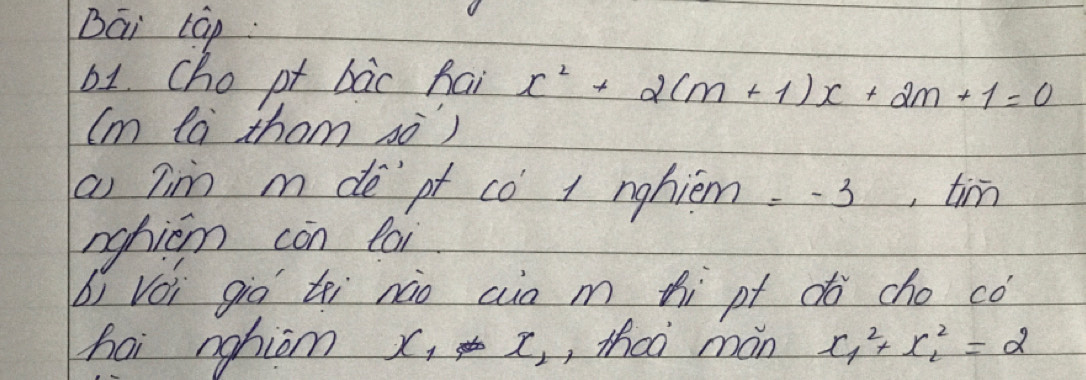 Bài tập:
b1. Cho pt bậc hai x² + 2(m + 1)x + 2m + 1 = 0
(m là tham số)
a) Tìm m để pt có 1 nghiệm = -3, tìm
nghiệm còn lại.
b) Với giá trị nào của m thì pt đã cho có
hai nghiệm x₁, x₂, thoả mãn x₁² + x₂² = 2